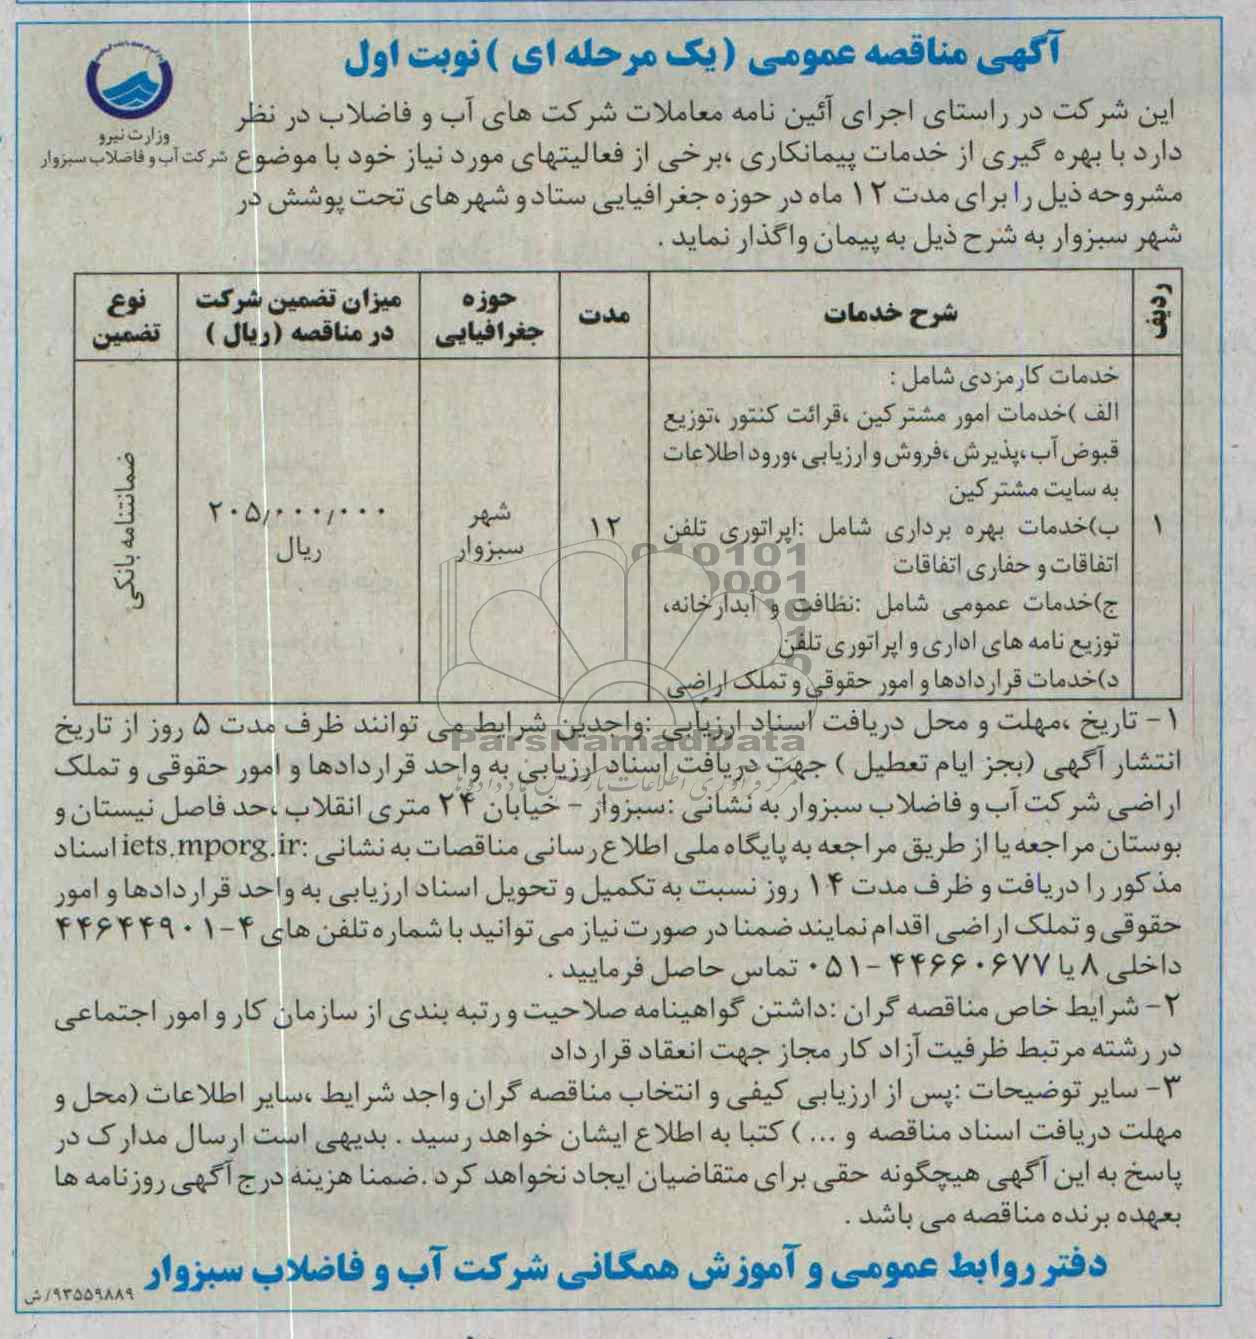 آگهی مناقصه عمومی (یک مرحله ای )نوبت اول
وزارت نیرو
شرکت آب و فاضلاب سبزوار
این شرکت در راستای اجرای آئین نامه معاملات شرکت های آب و فاضلاب در نظر
دارد با بهره گیری از خدمات پیمانکاری ،برخی از فعالیتهای مورد نیاز خود با موضوع
مشروحه ذیل را برای مدت ۱۲ ماه در حوزه جغرافیایی ستاد و شهرهای تحت پوشش در
شهر سبزوار به شرح ذیل به پیمان واگذار نماید .
ردیف
شرح خدمات
مدت
حوزه
جغرافیایی
میزان تضمین شرکت
در مناقصه (ریال )
نوع
تضمین
۱
خدمات کارمزدی شامل :
الف )خدمات امور مشترکین ،قرائت کنتور ،توزیع
قبوض آب ،پذیرش ،فروش و ارزیابی ،ورود اطلاعات
به سایت مشترکین
ب)خدمات بهره برداری شامل :اپراتوری تلفن
اتفاقات و حفاری اتفاقات
ج)خدمات عمومی شامل :نظافت و آبدارخانه،
توزیع نامه های اداری و اپراتوری تلفن
د)خدمات قراردادها و امور حقوقی و تملک اراضی
۱۲
شهر
سبزوار
۲۰۵/۰۰۰/۰۰۰
ریال
ضمانتنامه بانکی
۱- تاریخ ،مهلت و محل دریافت اسناد ارزیابی :واجدین شرایط می توانند ظرف مدت ۵ روز از تاریخ
انتشار آگهی (بجز ایام تعطیل ) جهت دریافت اسناد ارزیابی به واحد قراردادها و امور حقوقی و تملک
اراضی شرکت آب و فاضلاب سبزوار به نشانی :سبزوار - خیابان ۲۴ متری انقلاب ،حد فاصل نیستان و
بوستان مراجعه یا از طریق مراجعه به پایگاه ملی اطلاع رسانی مناقصات به نشانی :iets.mporg.ir اسناد
مذکور را دریافت و ظرف مدت ۱۴ روز نسبت به تکمیل و تحویل اسناد ارزیابی به واحد قراردادها و امور
حقوقی و تملک اراضی اقدام نمایند ضمنا در صورت نیاز می توانید با شماره تلفن های ۴-۴۴۶۴۴۹۰۱
داخلی ۸ یا ۴۴۶۶۰۶۷۷-۰۵۱ تماس حاصل فرمایید .
۲- شرایط خاص مناقصه گران :داشتن گواهینامه صلاحیت و رتبه بندی از سازمان کار و امور اجتماعی
در رشته مرتبط ظرفیت آزاد کار مجاز جهت انعقاد قرارداد
۳- سایر توضیحات :پس از ارزیابی کیفی و انتخاب مناقصه گران واجد شرایط ،سایر اطلاعات (محل و
مهلت دریافت اسناد مناقصه و ... ) کتبا به اطلاع ایشان خواهد رسید . بدیهی است ارسال مدارک در
پاسخ به این آگهی هیچگونه حقی برای متقاضیان ایجاد نخواهد کرد .ضمنا هزینه درج آگهی روزنامه ها
بعهده برنده مناقصه می باشد .
دفتر روابط عمومی و آموزش همگانی شرکت آب و فاضلاب سبزوار
۹۳۵۵۹۸۸۹/ش
ParsNamadData